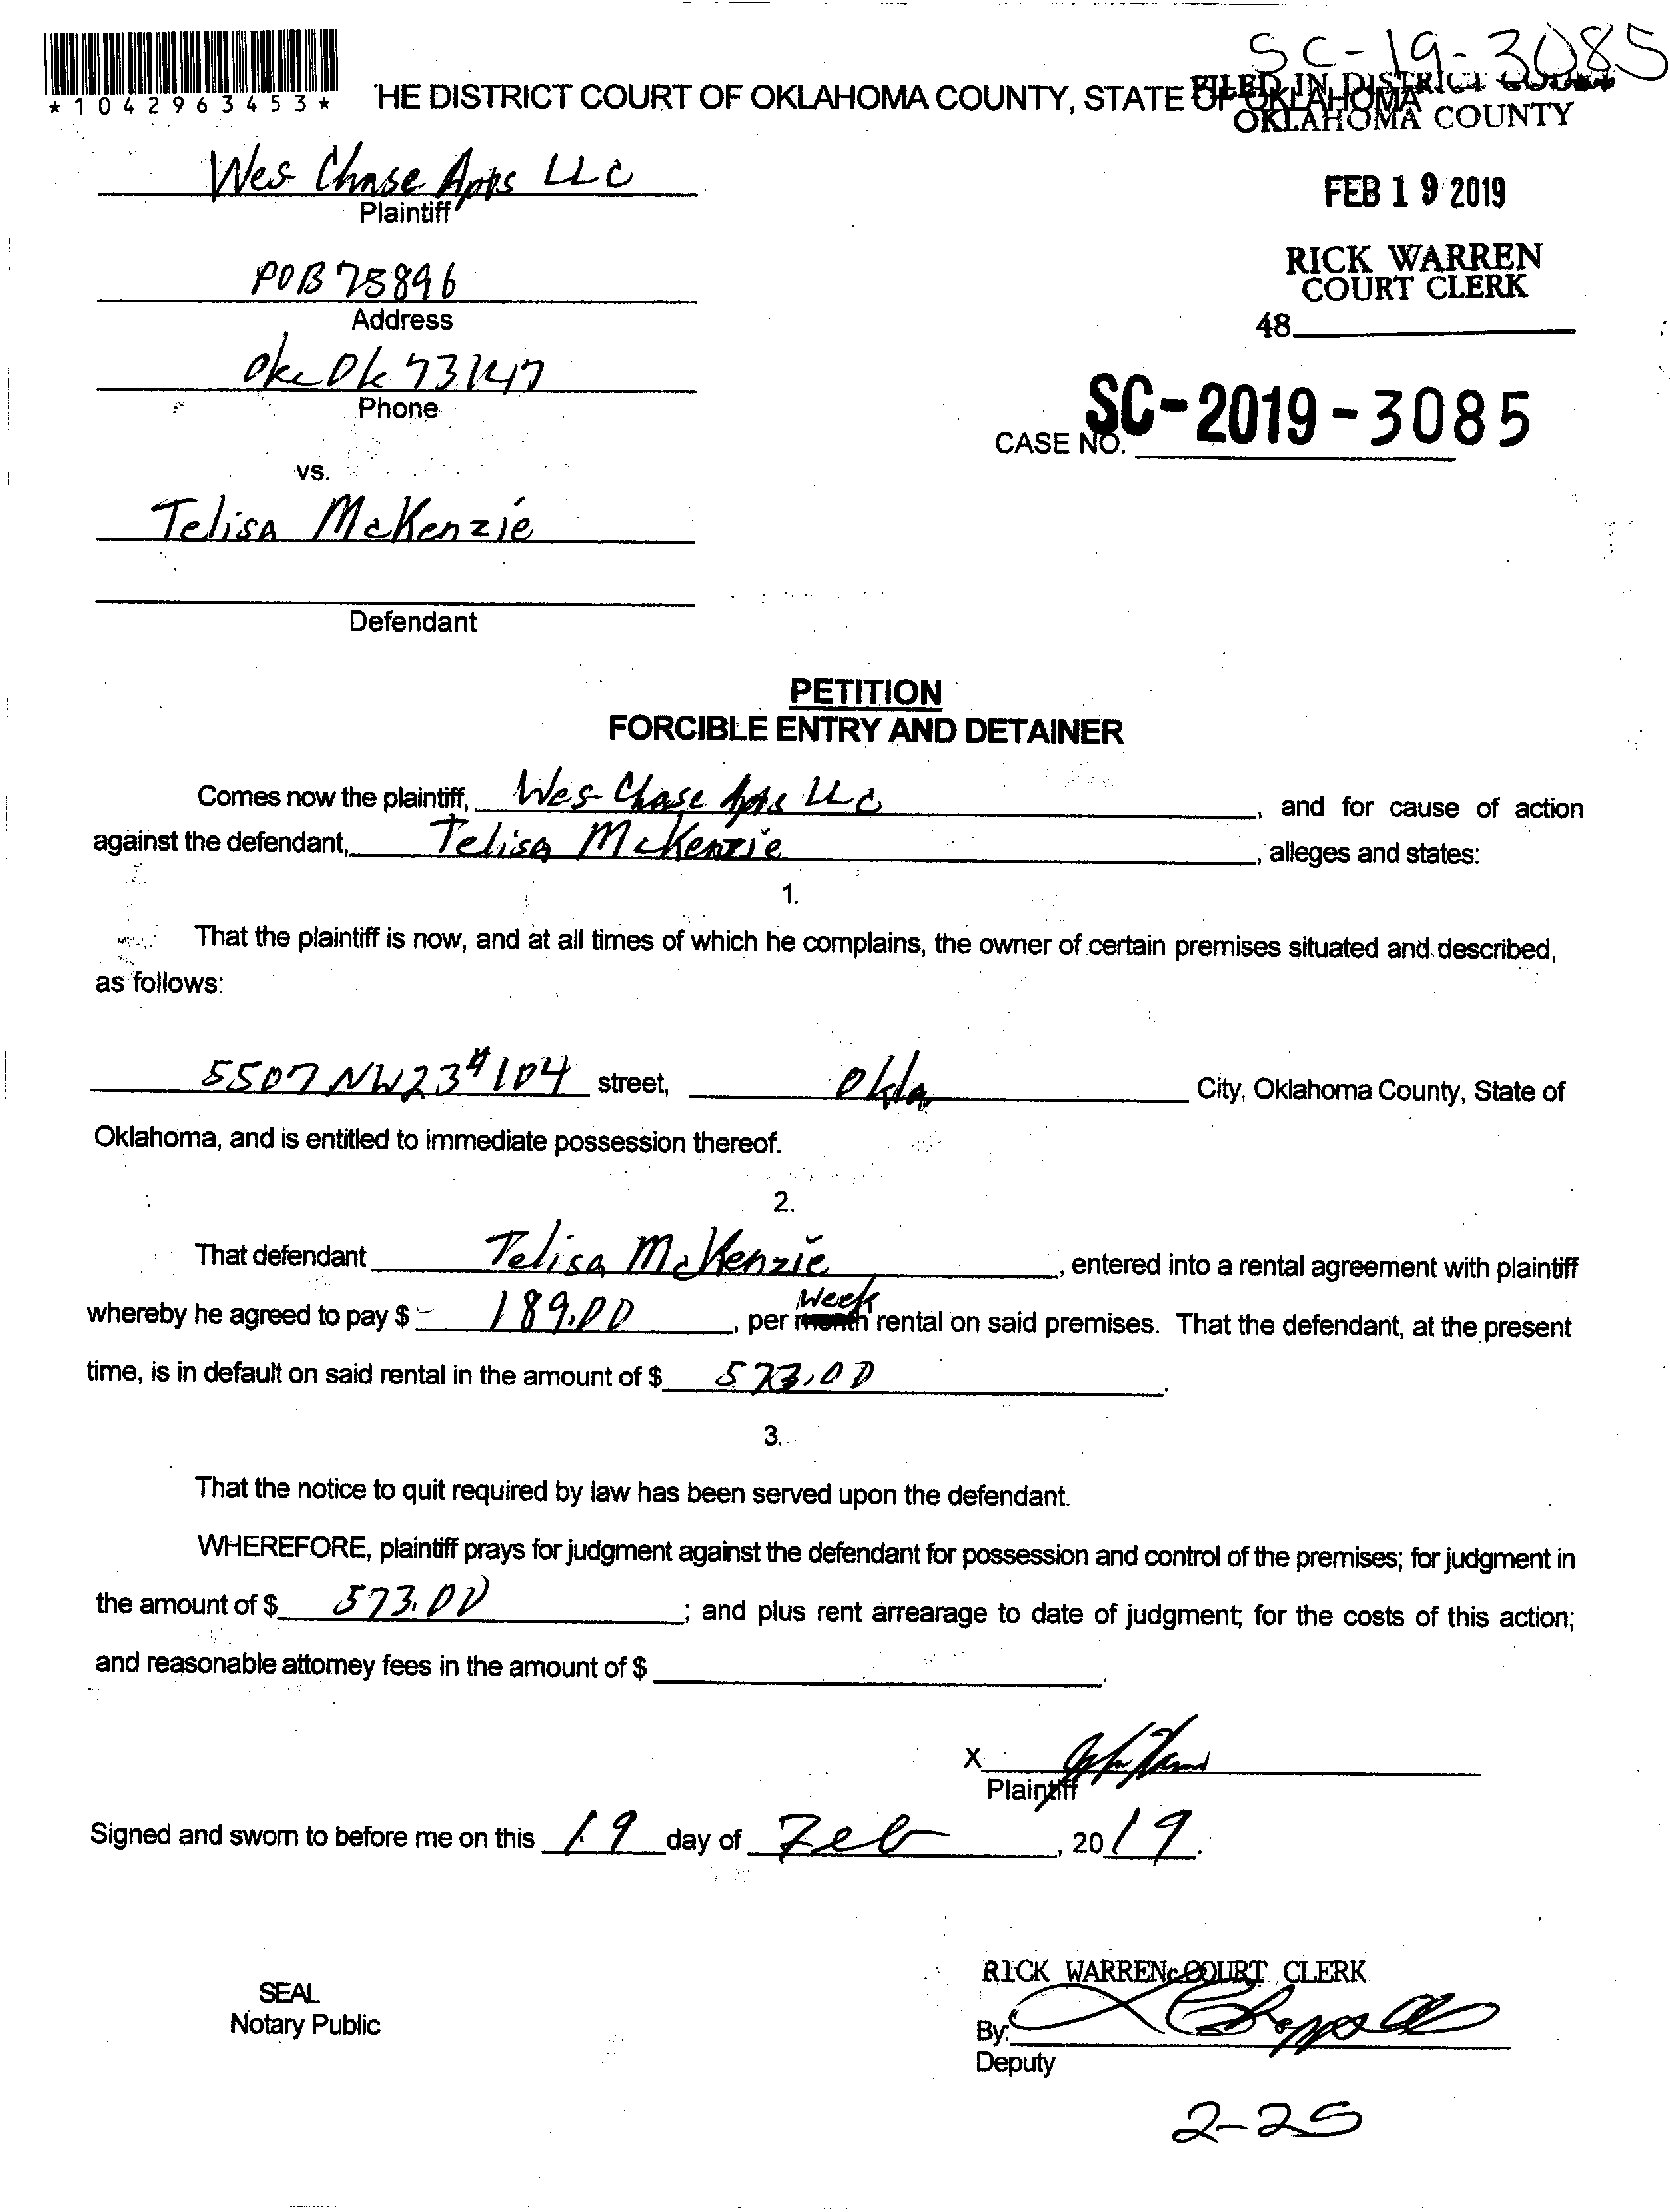 SC-19-3085
*1042963453*
THE DISTRICT COURT OF OKLAHOMA COUNTY, STATE OF OKLAHOMA
FILED IN DISTRICT COURT
OKLAHOMA COUNTY
Wes Chase Apts LLC
Plaintiff
FEB 19 2019
RICK WARREN
COURT CLERK
48
POB 75896
Address
Okc Ok 73147
Phone
SC-2019-3085
CASE NO.
vs.
Telisa McKenzie
Defendant
PETITION
FORCIBLE ENTRY AND DETAINER
Comes now the plaintiff, Wes Chase Apts LLC, and for cause of action
against the defendant, Telisa McKenzie, alleges and states:
1.
That the plaintiff is now, and at all times of which he complains, the owner of certain premises situated and described,
as follows:
5507 NW 23 #104 street, Okla City, Oklahoma County, State of
Oklahoma, and is entitled to immediate possession thereof.
2.
That defendant Telisa McKenzie, entered into a rental agreement with plaintiff
whereby he agreed to pay $ 189.00, per month Week rental on said premises. That the defendant, at the present
time, is in default on said rental in the amount of $ 573.00.
3.
That the notice to quit required by law has been served upon the defendant.
WHEREFORE, plaintiff prays for judgment against the defendant for possession and control of the premises; for judgment in
the amount of $ 573.00; and plus rent arrearage to date of judgment; for the costs of this action;
and reasonable attorney fees in the amount of $
X
Plaintiff
Signed and sworn to before me on this 19 day of Feb, 2019.
RICK WARREN, COURT CLERK
SEAL
Notary Public
By:
Deputy
2-25